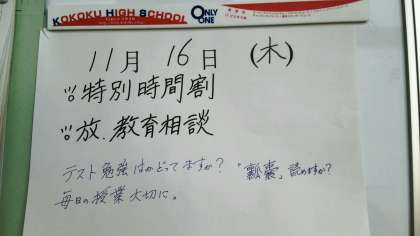 KOKOKU HIGH SCHOOL
Since 1938
ONLY ONE
11月 16日 (木)
特別時間割
放.教育相談
テスト勉強はかどってますか? "瓢嚢"読めますか?
毎日の授業大切に。